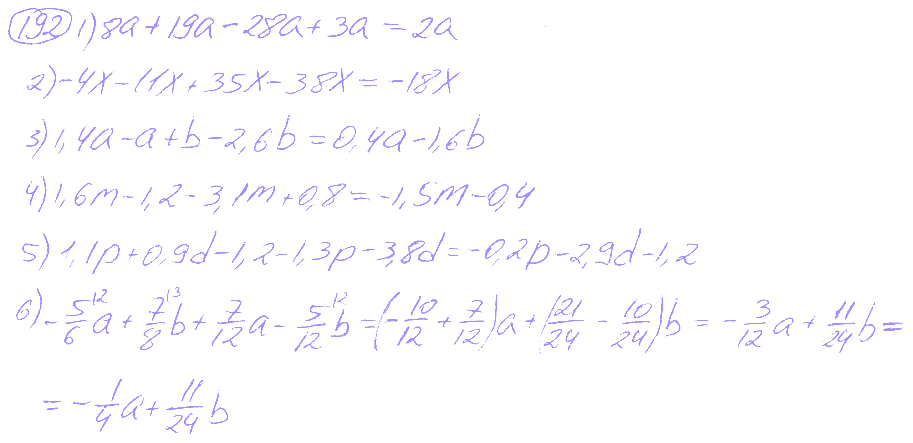 192 1) 8a + 19a - 28a + 3a = 2a
2) -4x - 11x + 35x - 38x = -18x
3) 1,4a - a + b - 2,6b = 0,4a - 1,6b
4) 1,6m - 1,2 - 3,1m + 0,8 = -1,5m - 0,4
5) 1,1p + 0,9d - 1,2 - 1,3p - 3,8d = -0,2p - 2,9d - 1,2
6) -5/6^{12} a + 7/8^{13} b + 7/12 a - 5/12^{12} b = (-10/12 + 7/12)a + (21/24 - 10/24)b = -3/12 a + 11/24 b =
= -1/4 a + 11/24 b